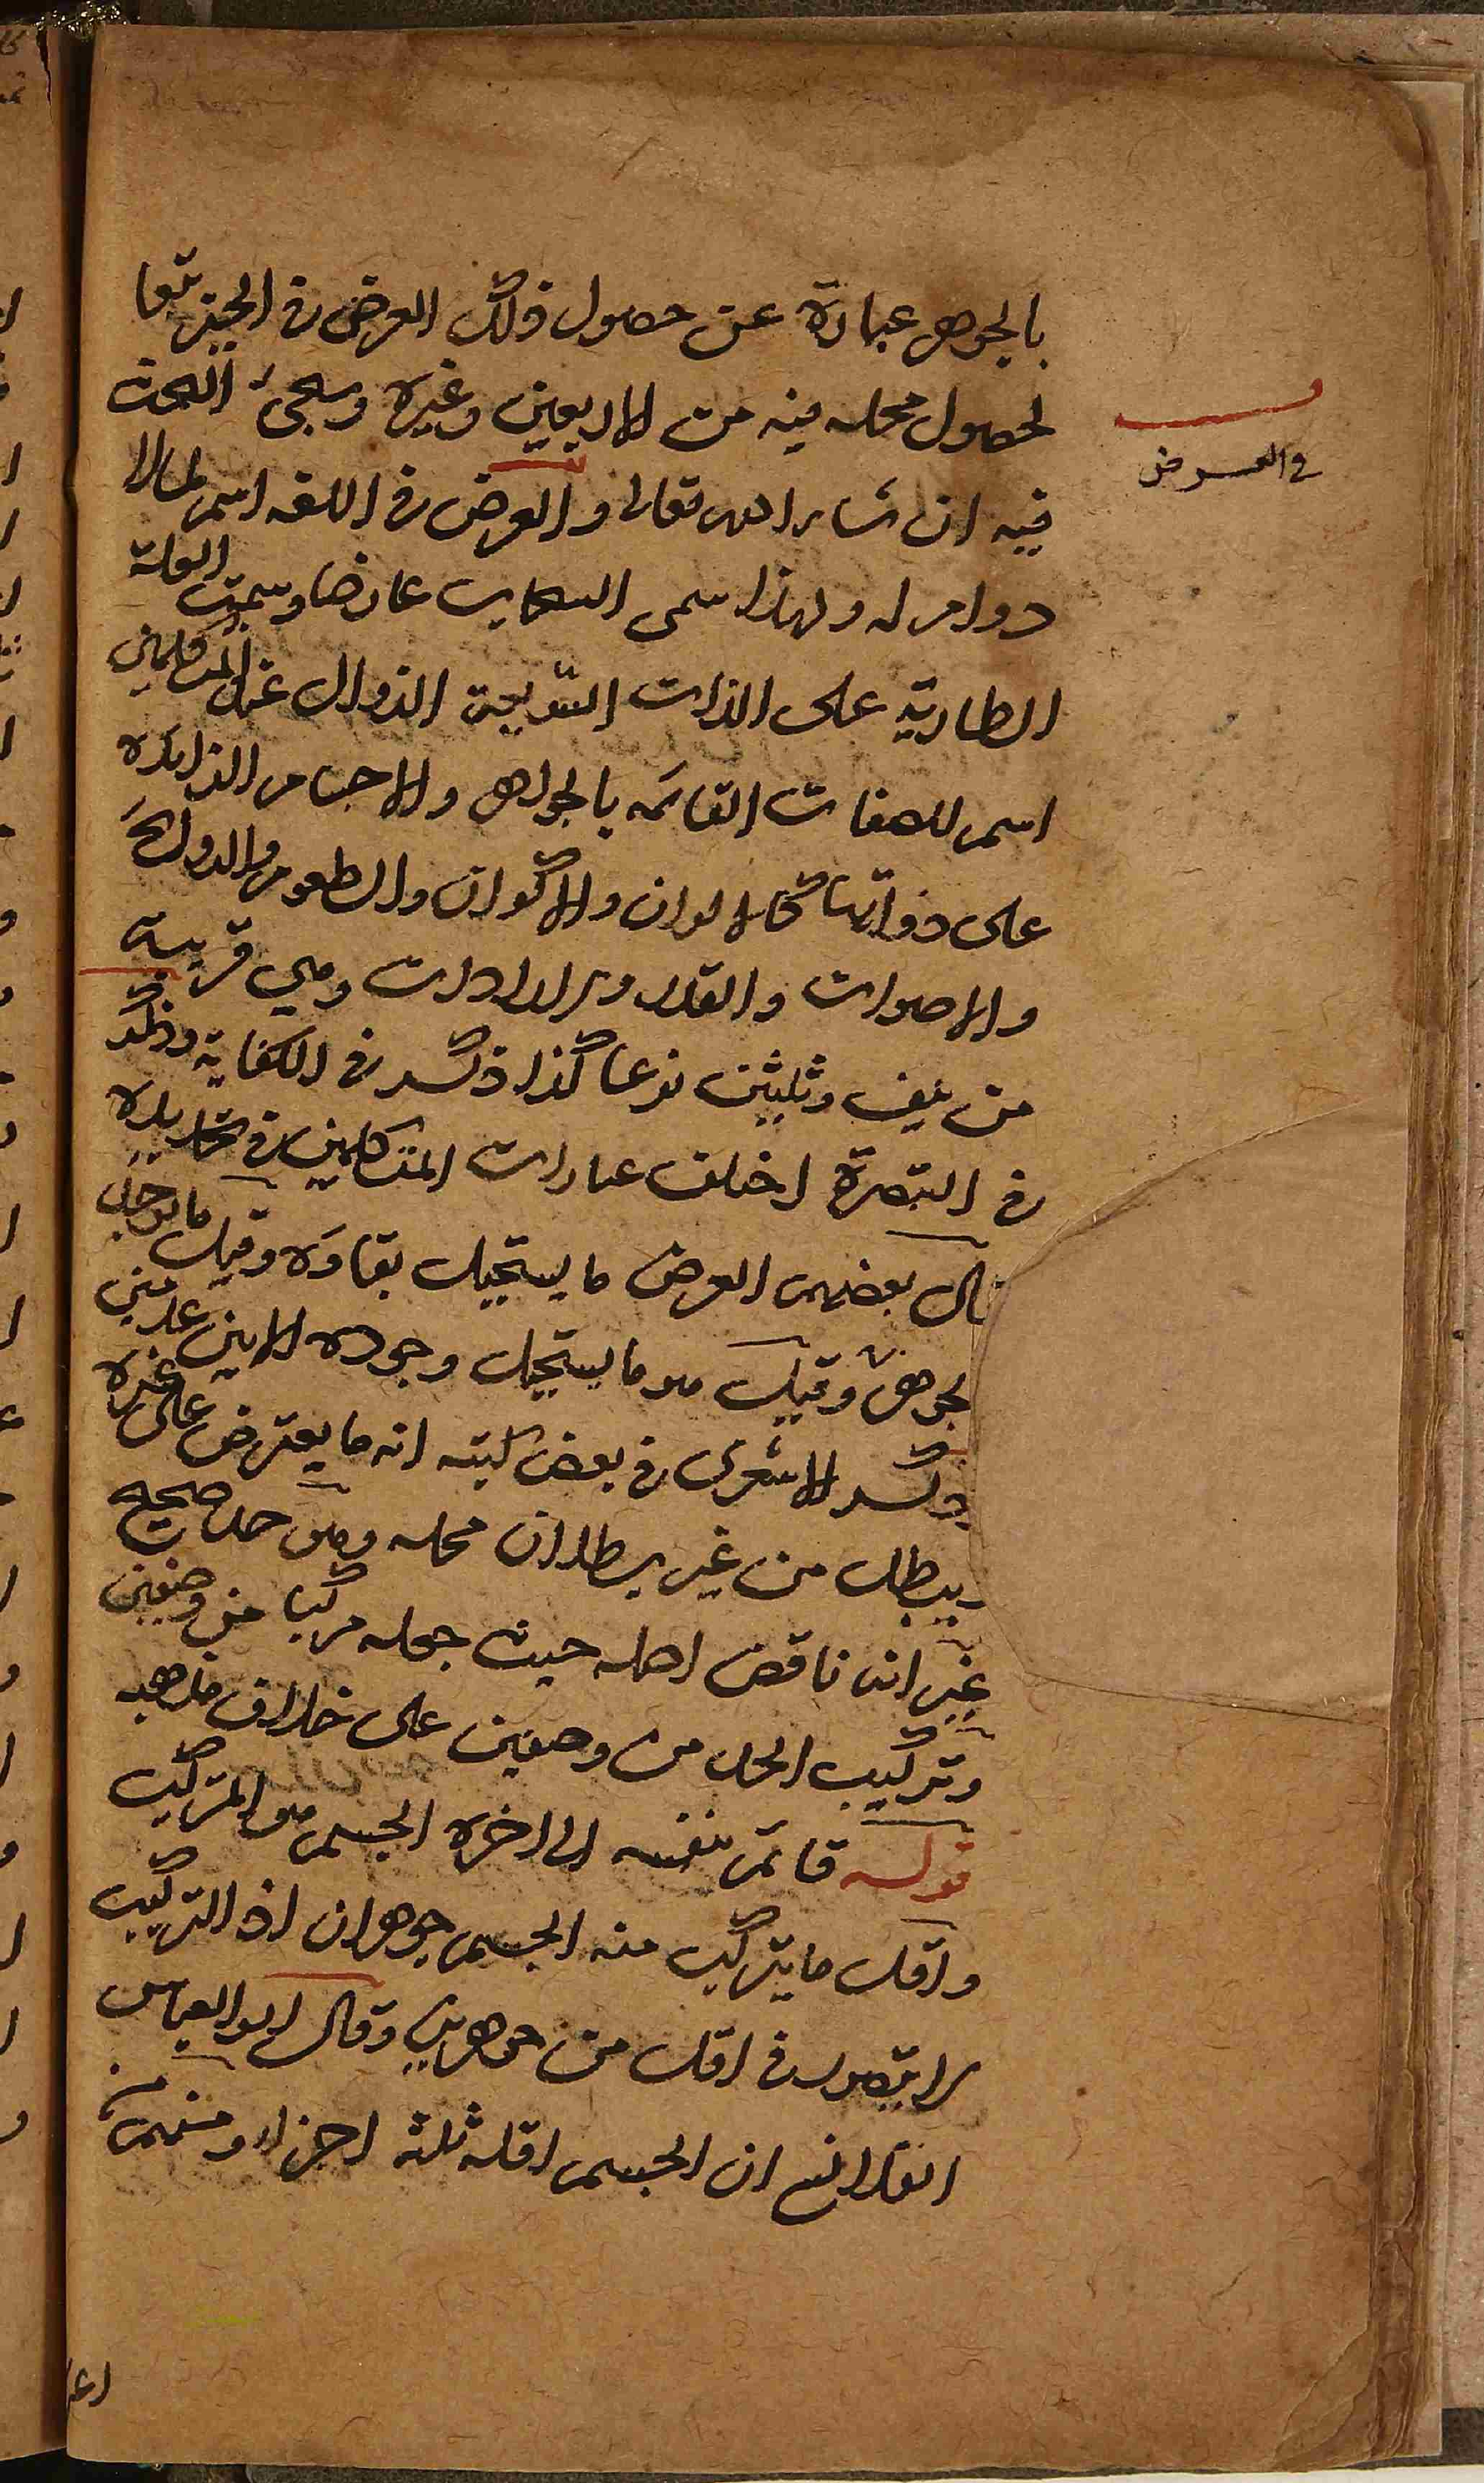 بالجوهر عبارة عن حصول ذلك العرض في الحيز تبعا
لحصول محله فيه من الاربعين وغيره وسيجئ البحث
فيه ان شاء الله تعالى والعرض في اللغه اسم لما لا
دوام له ولهذا سمى السحاب عارضا وسميت العلة
الطارية على الذات السريعة الزوال عند المتكلمين
اسم للصفات القائمه بالجواهر والاجسام الزايدة
على ذواتها كالالوان والاكوان والطعوم والروائح
والاصوات والقدر والارادات وهي قريبة
من نيف وثلثين نوعا كذا ذكر في الكفاية وذكر
في التبصرة اختلف عبارات المتكلمين في تحديده
قال بعضهم العرض ما يستحيل بقاؤه وقيل ما يوجد
بجوهر وقيل هو ما يستحيل وجوده الا بين عدمين
وذكر الاشعرى في بعض كتبه انه ما يعترض على غيره
ويبطل من غير بطلان محله وهو حد صحيح
غير انه ناقض اصله حيث جعله مركبا من وصفين
وتركيب الحد من وصفين على خلاف مذهبه
قوله قائم بنفسه الى اخره الجسم هو المتركب
واقل ما يتركب منه الجسم جوهران اذ التركيب
لا يتصور في اقل من جوهرين وقال ابو العباس
القلانسي ان الجسم اقله ثلثة اجزاء ومنهم من
في العرض